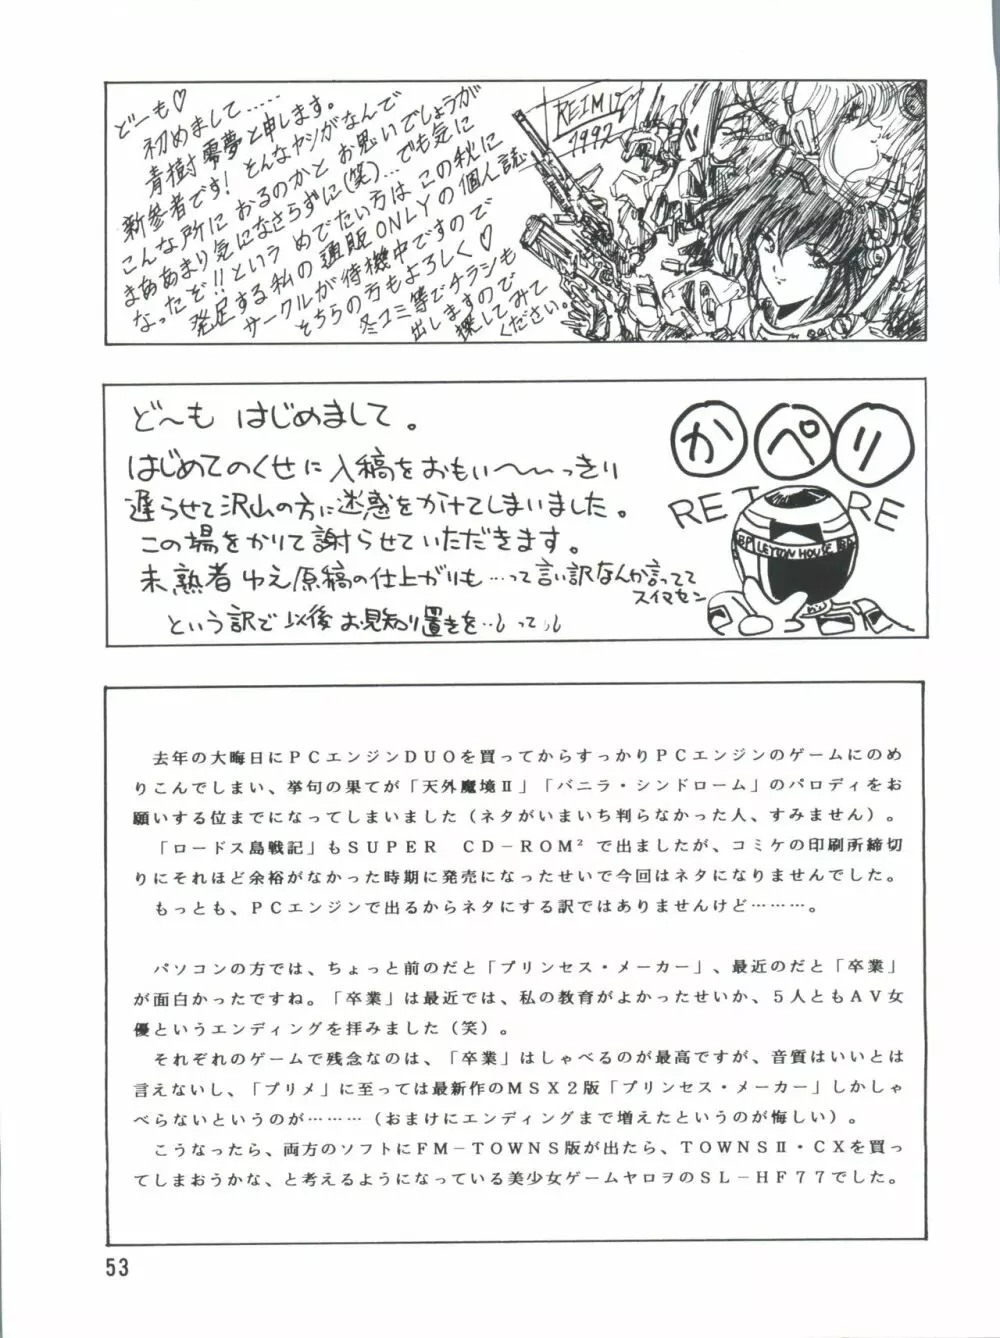 どーも♡
初めまして……
青樹零夢と申します。
新参者です！そんなヤツがなんで
こんな所におるのかとお思いでしょうが
まああまり気になさらずに(笑)…でも気に
なったぞ!!というめでたい方はこの秋に
発足する私の通販ONLYの個人誌
サークルが待機中ですので
そちらの方もよろしく♡
冬コミ等でチラシも
出しますので
探してみて
ください。
REIM
1992
ど〜も はじめまして。
はじめてのくせに入稿をおもい〜〜っきり
遅らせて沢山の方に迷惑をかけてしまいました。
この場をかりて謝らせていただきます。
未熟者ゆえ原稿の仕上がりも…って言い訳なんか言ってて
スイマセン
という訳で以後お見知り置きを
かぺり
RETIRE
BP LEYTON HOUSE BP
去年の大晦日にＰＣエンジンＤＵＯを買ってからすっかりＰＣエンジンのゲームにのめ
りこんでしまい、挙句の果てが「天外魔境Ⅱ」「バニラ・シンドローム」のパロディをお
願いする位までになってしまいました（ネタがいまいち判らなかった人、すみません）。
「ロードス島戦記」もＳＵＰＥＲ　ＣＤ－ＲＯＭ²で出ましたが、コミケの印刷所締切
りにそれほど余裕がなかった時期に発売になったせいで今回はネタになりませんでした。
もっとも、ＰＣエンジンで出るからネタにする訳ではありませんけど………。
パソコンの方では、ちょっと前のだと「プリンセス・メーカー」、最近のだと「卒業」
が面白かったですね。「卒業」は最近では、私の教育がよかったせいか、５人ともＡＶ女
優というエンディングを拝みました（笑）。
それぞれのゲームで残念なのは、「卒業」はしゃべるのが最高ですが、音質はいいとは
言えないし、「プリメ」に至っては最新作のＭＳＸ２版「プリンセス・メーカー」しかしゃ
べらないというのが………（おまけにエンディングまで増えたというのが悔しい）。
こうなったら、両方のソフトにＦＭ－ＴＯＷＮＳ版が出たら、ＴＯＷＮＳⅡ・ＣＸを買っ
てしまおうかな、と考えるようになっている美少女ゲームヤロヲのＳＬ－ＨＦ７７でした。
53